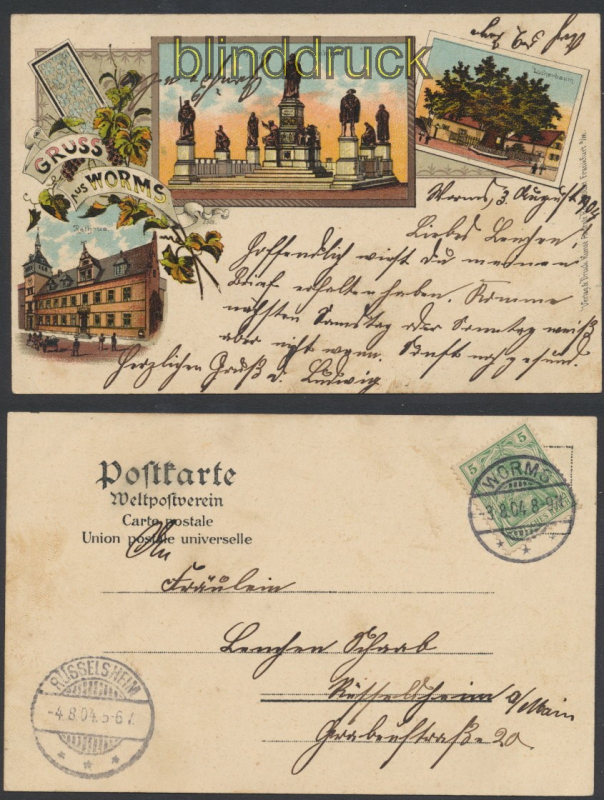 blinddruck
Lutherbaum
GRUSS
AUS WORMS
Rathaus
Worms 3. August 1904
Liebes Lenchen!
Hoffentlich wirst du meinen
Brief erhalten haben. Komme
nächsten Samstag oder Sonntag weiß
aber nicht wann.
Herzlichen Gruß d. Ludwig
Postkarte
Weltpostverein
Carte postale
Union postale universelle
5 5
WORMS
3.8.04. 8-9
An
Fräulein
Lenchen Schaab
Rüsselsheim a/Main
Grabenstraße 20
RÜSSELSHEIM
-4.8.04. 5-6 V.